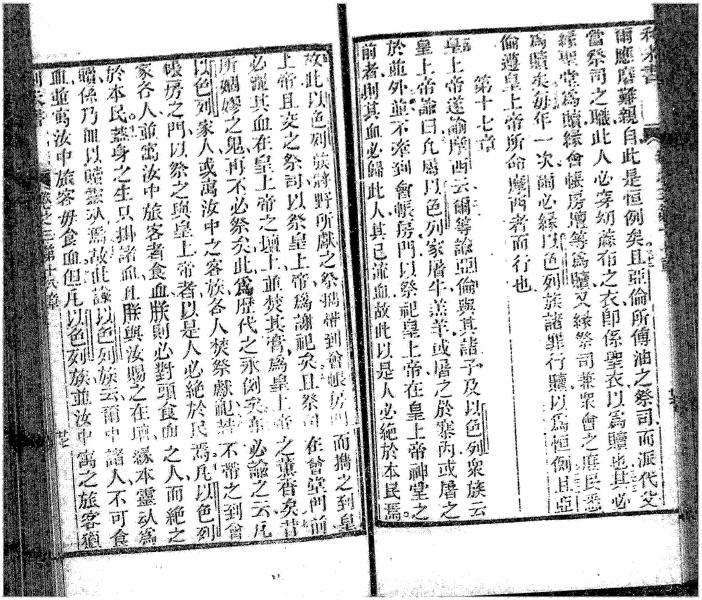 爾應靡難親自此是恒例矣且亞倫所傅油之祭司而派代父
當祭司之職此人必穿幼蔴布之衣即係聖衣以為贖也其必
緣聖堂為贖緣會帳房壇等為贖又緣祭司兼眾會之庶民悉
為贖矣每年一次爾必緣以色列族諸罪行贖以為恒例且亞
倫遵皇上帝所命摩西者而行也
第十七章
皇上帝遂諭摩西云爾等諭亞倫與其諸子及以色列眾族云
皇上帝諭曰凡屬以色列家屠牛羔羊或屠之於寨內或屠之
於並外並不率到會帳房門以祭祀皇上帝在皇上帝神堂之
前者則其血必歸此人其已流血故此以是人必絕於本民焉
故此以色列族將野所獻之祭携到會帳房門而携之到皇
上帝且交之祭司以祭皇上帝為謝祀矣且祭司在會堂門前
必灑其血在皇上帝之壇上並焚其膏為皇上帝之薰香矣昔
所姻嫪之鬼再不必祭矣此為歷代之永例矣必諭之云凡
以色列家人或寓汝中之客族各人焚祭獻祀若不帶之到會
帳房之門以祭之與皇上帝者以是人必絕於民焉凡以色列
家各人並寓汝中旅客者食血朕則必對頭食血之人而絕之
於本民蓋身之生只掛諸血且朕與汝賜之在壇緣本靈以為
贖係乃血以贖靈焉故此諭以色列族云爾中諸人不可食
血並寓汝中旅客毋食血但凡以色列族並汝中寓之旅客獵